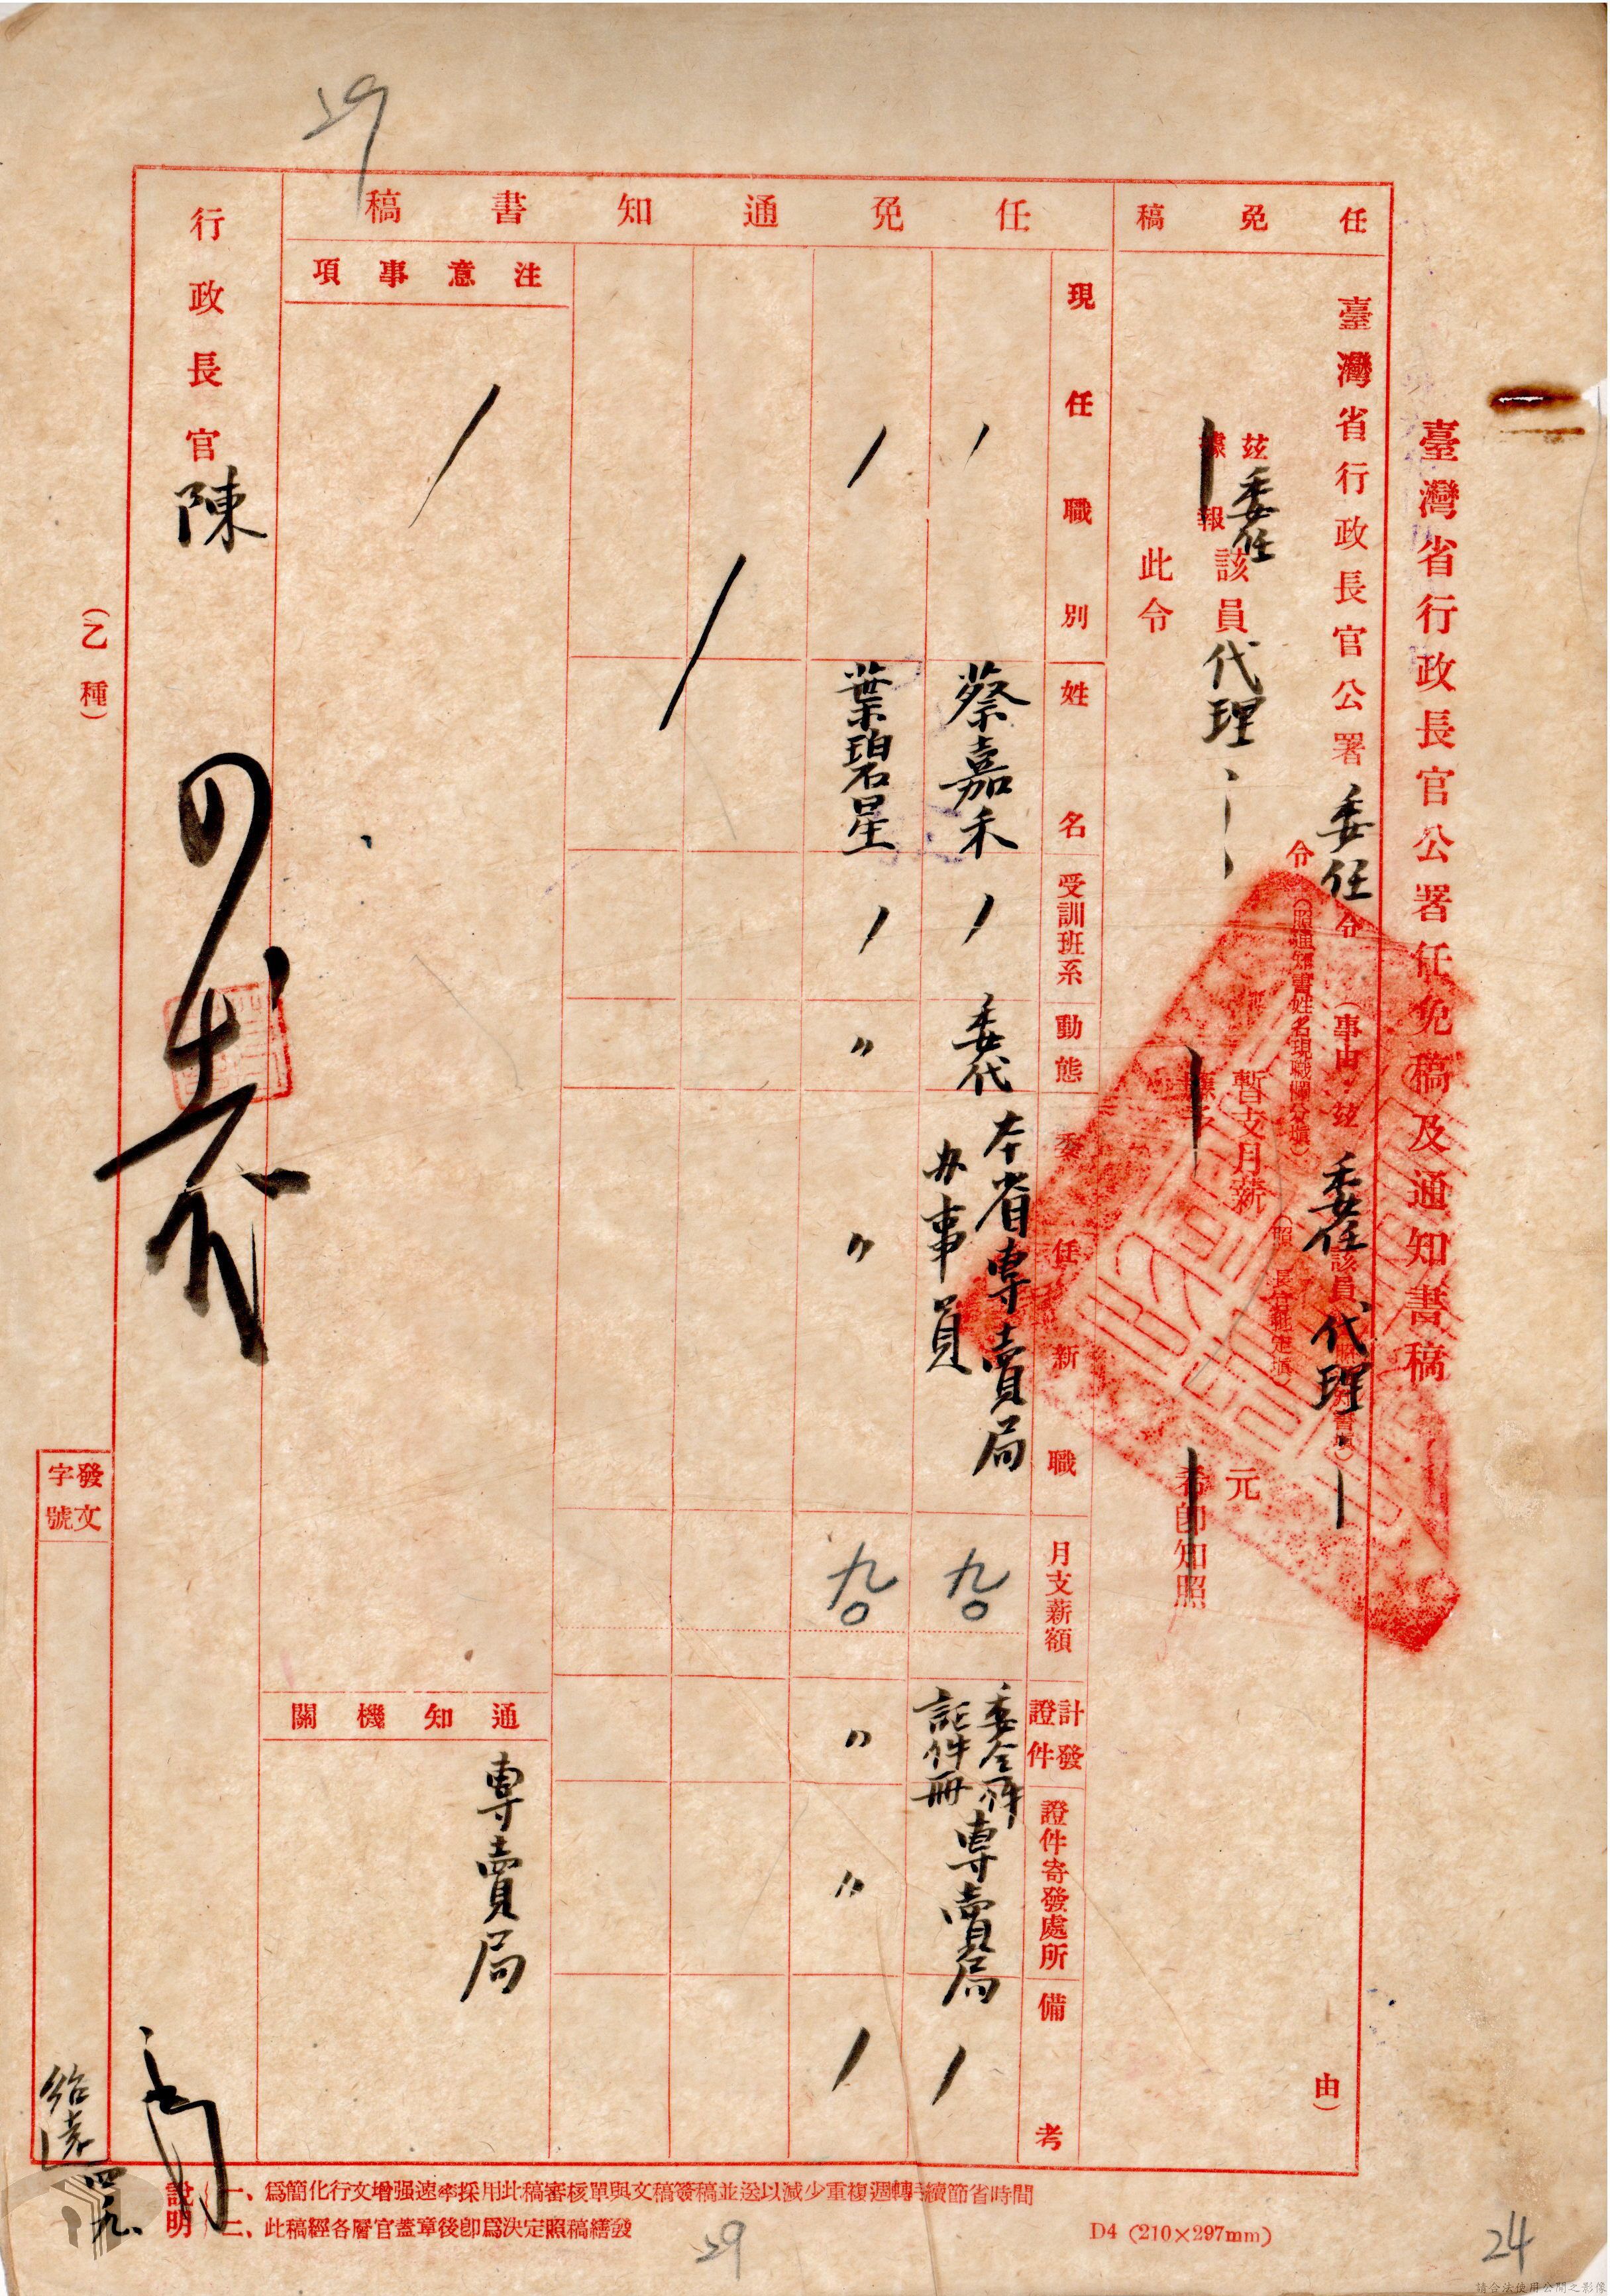 臺灣省行政長官公署任免稿及通知書稿
任免稿
臺灣省行政長官公署委任令（事由：茲委任該員代理
由）
令（照通知書姓名現職欄分塡）
茲委任
據報
該員代理
暫支月薪
元
希卽知照
此令
任免通知書稿
現任職別
姓名
受訓班系
動態
委任新職
月支薪額
計發證件
證件寄發處所
備考
蔡嘉禾
委代
本省專賣局
办事員
九〇
專賣局
葉碧星
〃
〃
九〇
〃
〃
注意事項
通知機關
專賣局
行政長官陳
（乙種）
發文字號
說明
一、爲簡化行文增强速率採用此稿審核單與文稿簽稿並送以減少重複週轉手續節省時間
二、此稿經各層官蓋章後卽爲決定照稿繕發
D4 (210×297mm)
29
29
24
請合法使用公開之影像